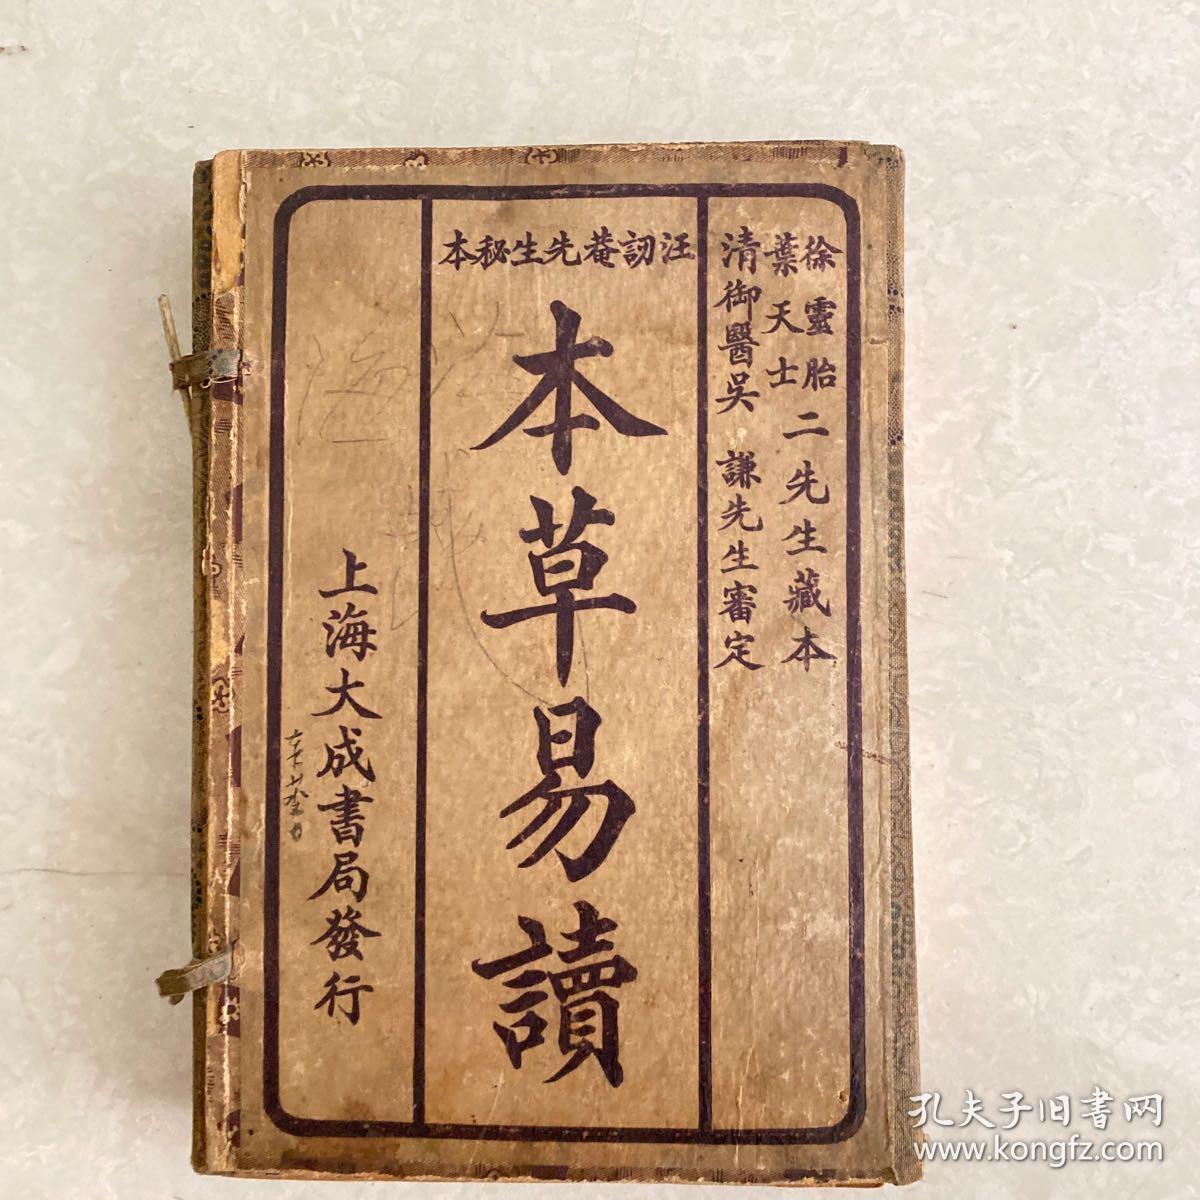 徐靈胎
葉天士
二先生藏本
清御醫吳謙先生審定
汪訒菴先生秘本
本草易讀
上海大成書局發行
孔夫子旧书网
www.kongfz.com